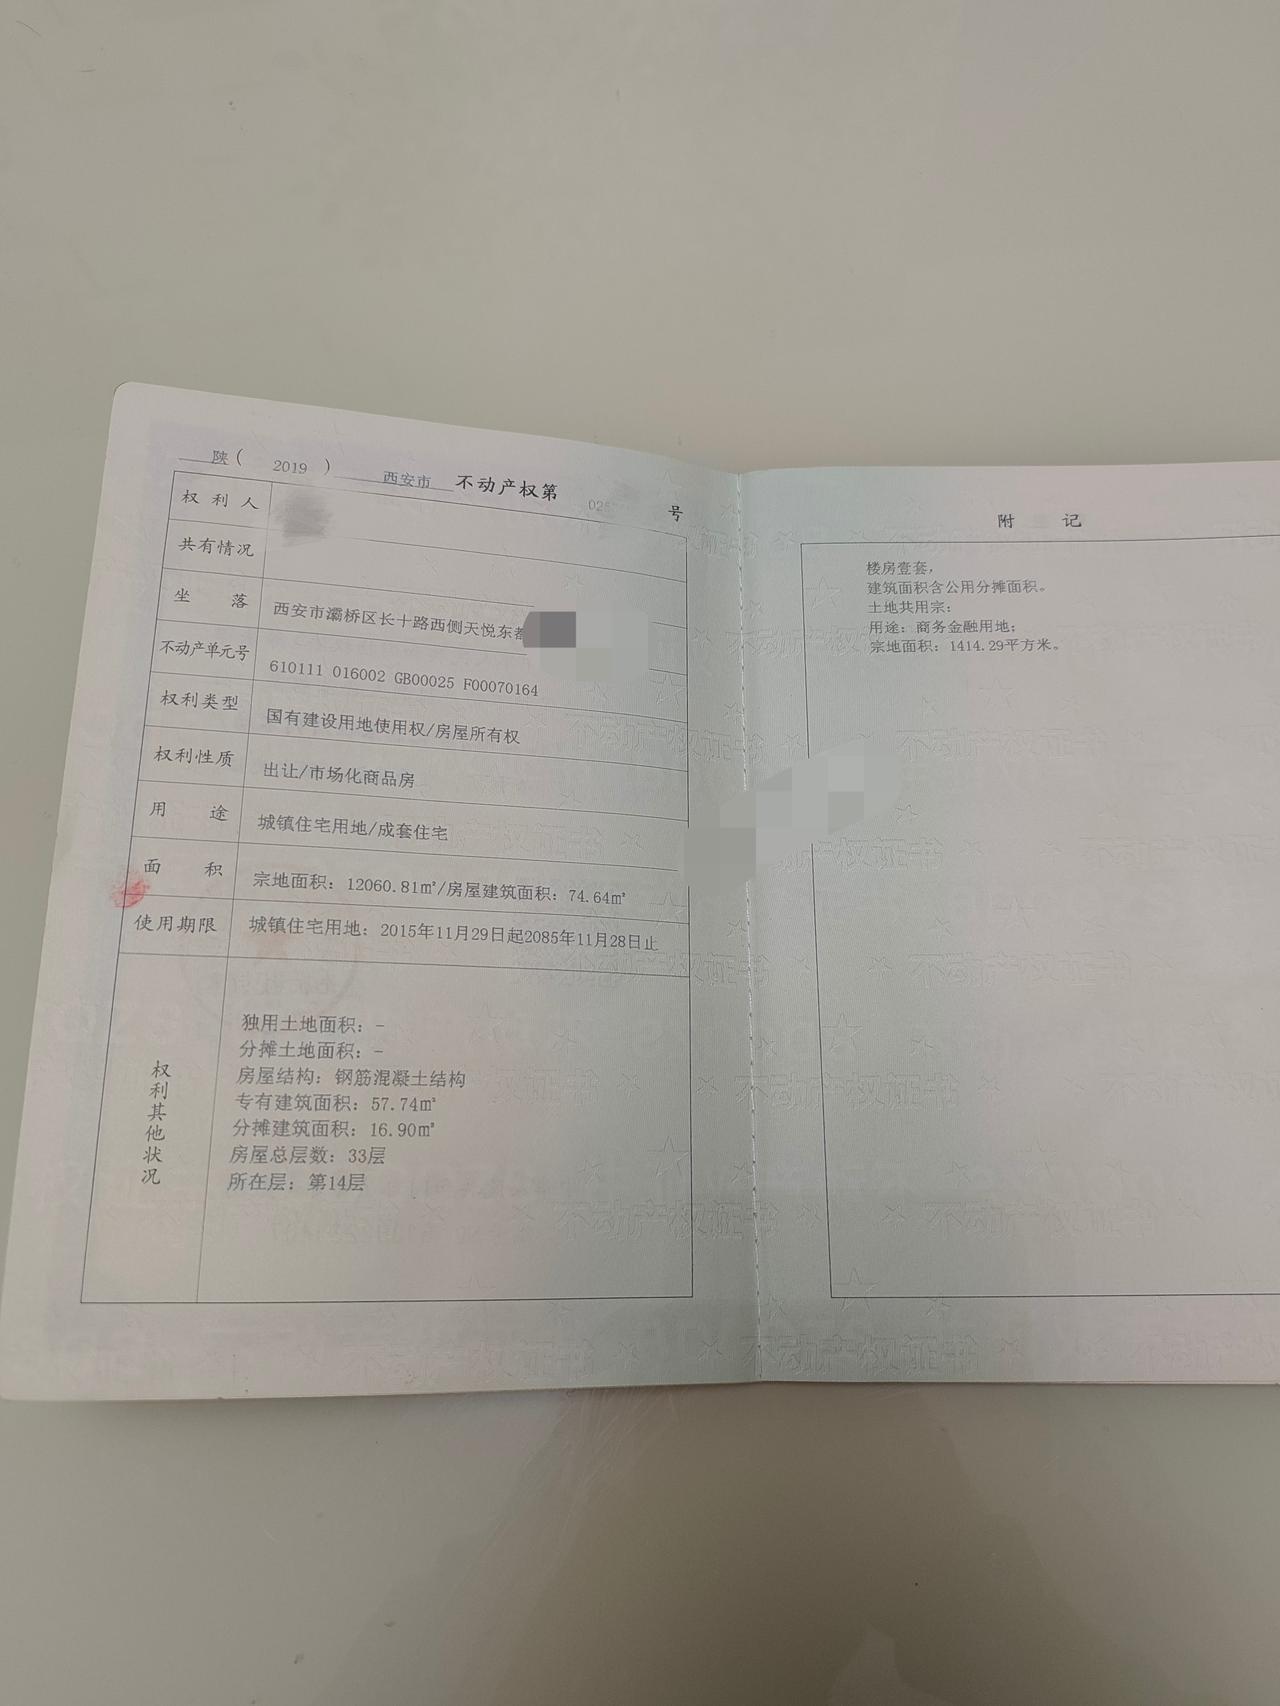 陕( 2019 ) 西安市 不动产权第 025 号
权利人
共有情况
坐落 西安市灞桥区长十路西侧天悦东都
不动产单元号 610111 016002 GB00025 F00070164
权利类型 国有建设用地使用权/房屋所有权
权利性质 出让/市场化商品房
用途 城镇住宅用地/成套住宅
面积 宗地面积：12060.81㎡/房屋建筑面积：74.64㎡
使用期限 城镇住宅用地：2015年11月29日起2085年11月28日止
权利其他状况
独用土地面积：-
分摊土地面积：-
房屋结构：钢筋混凝土结构
专有建筑面积：57.74㎡
分摊建筑面积：16.90㎡
房屋总层数：33层
所在层：第14层
附 记
楼房壹套，
建筑面积含公用分摊面积。
土地共用宗：
用途：商务金融用地；
宗地面积：1414.29平方米。
不动产权证书